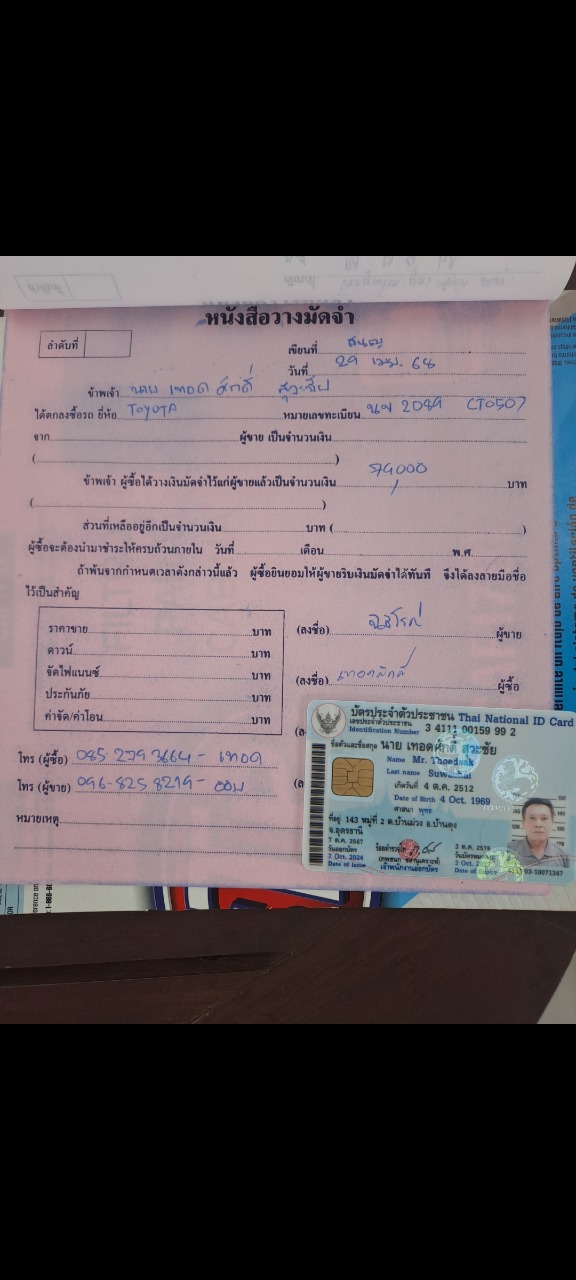 หนังสือวางมัดจำ
ลำดับที่
เขียนที่
วันที่ 29 เมย. 68
ข้าพเจ้า นาย เทอดศักดิ์ สุวะชัย
ได้ตกลงซื้อรถ ยี่ห้อ TOYOTA หมายเลขทะเบียน 2089 CT0507
จาก ผู้ขาย เป็นจำนวนเงิน
( )
ข้าพเจ้า ผู้ซื้อได้วางเงินมัดจำไว้แก่ผู้ขายแล้วเป็นจำนวนเงิน บาท
( )
ส่วนที่เหลืออยู่อีกเป็นจำนวนเงิน บาท ( )
ผู้ซื้อจะต้องนำมาชำระให้ครบถ้วนภายใน วันที่ เดือน พ.ศ.
ถ้าพ้นจากกำหนดเวลาดังกล่าวนี้แล้ว ผู้ซื้อยินยอมให้ผู้ขายริบเงินมัดจำได้ทันที จึงได้ลงลายมือชื่อ
ไว้เป็นสำคัญ
ราคาขาย บาท
ดาวน์ บาท
จัดไฟแนนซ์ บาท
ประกันภัย บาท
ค่าจัด/ค่าโอน บาท
(ลงชื่อ) ผู้ขาย
(ลงชื่อ) เทอดศักดิ์ ผู้ซื้อ
โทร (ผู้ซื้อ) 085-279 3664 - เทอด
โทร (ผู้ขาย) 096-825 8219 - ออม
หมายเหตุ
บัตรประจำตัวประชาชน Thai National ID Card
เลขประจำตัวประชาชน
Identification Number 3 4111 00159 99 2
ชื่อตัวและชื่อสกุล นาย เทอดศักดิ์ สุวะชัย
Name Mr. Thoedsak
Last name Suwachai
เกิดวันที่ 4 ต.ค. 2512
Date of Birth 4 Oct. 1969
ศาสนา พุทธ
ที่อยู่ 143 หมู่ที่ 2 ต.บ้านม่วง อ.บ้านดุง
จ.อุดรธานี
7 ต.ค. 2567
วันออกบัตร
7 Oct. 2024
Date of Issue
เจ้าพนักงานออกบัตร
3 ต.ค. 2576
วันบัตรหมดอายุ
Date of Expiry
03-10071347